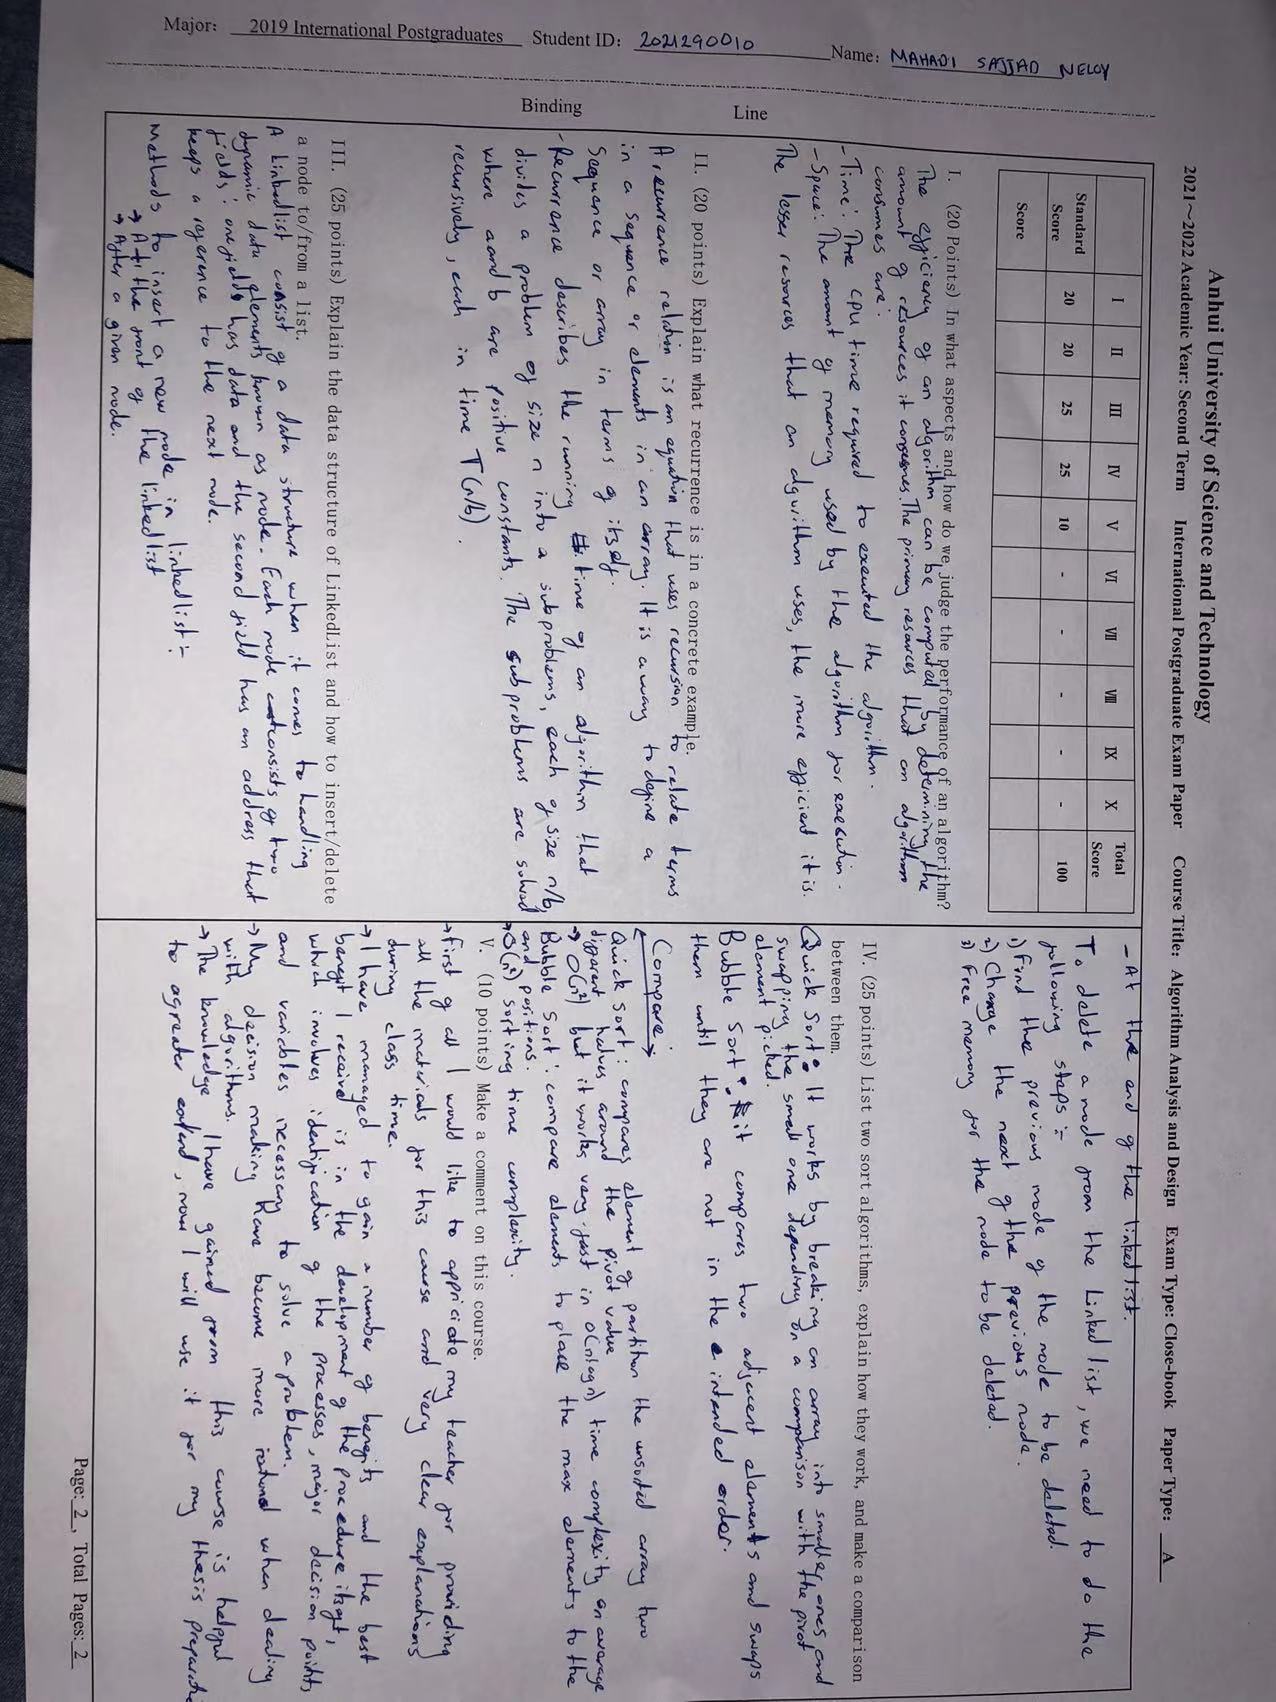 Major: 2019 International Postgraduates Student ID: 2021290010 Name: MAHADI SAJJAD NELOY
Binding Line
Anhui University of Science and Technology
2021~2022 Academic Year: Second Term International Postgraduate Exam Paper Course Title: Algorithm Analysis and Design Exam Type: Close-book Paper Type: A
I II III IV V VI VII VIII IX X Total Score
Standard Score 20 20 25 25 10 - - - - - 100
Score
I. (20 Points) In what aspects and how do we judge the performance of an algorithm?
The efficiency of an algorithm can be computed by determining the
amount of resources it consumes. The primary resources that an algorithm
consumes are:
- Time: The CPU time required to executed the algorithm.
- Space: The amount of memory used by the algorithm for execution.
The lesser resources that an algorithm uses, the more efficient it is.
II. (20 points) Explain what recurrence is in a concrete example.
A recurrence relation is an equation that uses recursion to relate terms
in a sequence or elements in an array. It is a way to define a
Sequence or array in terms of itself.
- Recurrence describes the running time of an algorithm that
divides a problem of size n into a subproblems, each of size n/b,
where a and b are positive constants. The subproblems are solved
recursively, each in time T(n/b).
III. (25 points) Explain the data structure of LinkedList and how to insert/delete
a node to/from a list.
A linkedlist consist of a data structure when it comes to handling
dynamic data elements known as node. Each node consists of two
fields: one field has data and the second field has an address that
keeps a reference to the next node.
Methods to insert a new node in linkedlist :-
→ At the front of the linkedlist
→ After a given node.
- At the end of the linked list.
To delete a node from the linked list, we need to do the
following steps :-
1) Find the previous node of the node to be deleted.
2) Change the next of the previous node.
3) Free memory for the node to be deleted.
IV. (25 points) List two sort algorithms, explain how they work, and make a comparison
between them.
Quick Sort: It works by breaking an array into smaller ones and
swapping the small one depending on a comparison with the pivot
element picked.
Bubble Sort: it compares two adjacent elements and swaps
them until they are not in the intended order.
Compare:
Quick sort: compares element of partition the unsorted array two
different halves around the pivot value
→ O(n²) but it works very fast in O(nlogn) time complexity on average
Bubble Sort: compare elements to place the max elements to the
and positions.
→ O(n²) sorting time complexity.
V. (10 points) Make a comment on this course.
→ First of all I would like to appriciate my teacher for providing
all the materials for this course and very clear explanations
during class time.
→ I have managed to gain a number of benefits and the best
benefit I received is in the development of the procedure itself,
which involves identification of the processes, major decision points,
and variables necessary to solve a problem.
→ My decison making have become more rational when dealing
with algorithms.
→ The knowledge I have gained from this course is helpful
to agreater extend, now I will use it for my thesis
Page: 2, Total Pages: 2